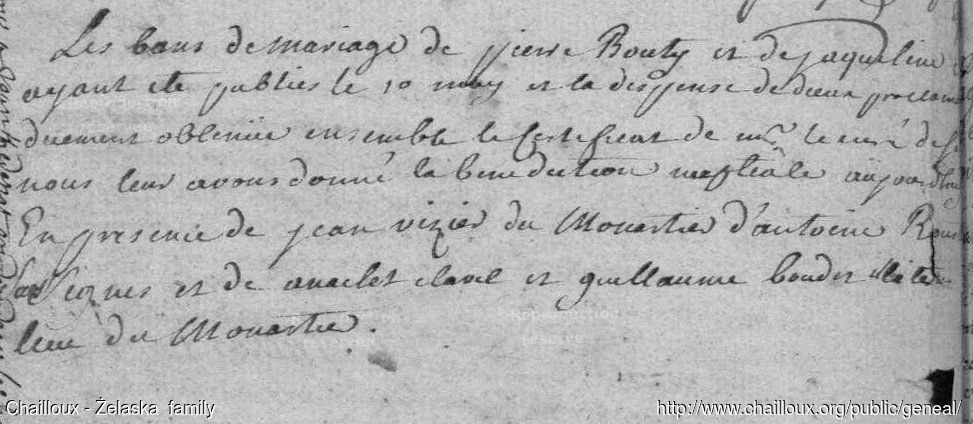 Les bans de mariage de pierre Bouty et de jaqueline
ayant ete publies le 10 may et la dispense de deux proclam
duement obtenüe ensemble le certificat de mr le curé de
nous leur avons donné la benediction nuptiale aujourdhuy
En presence de jean vizier du Monastier d'antoine Rous
signes et de anaclet clavel et guillaume boudet illite
lieu du Monastier.
Chailloux - Żelaska family
http://www.chailloux.org/public/geneal/